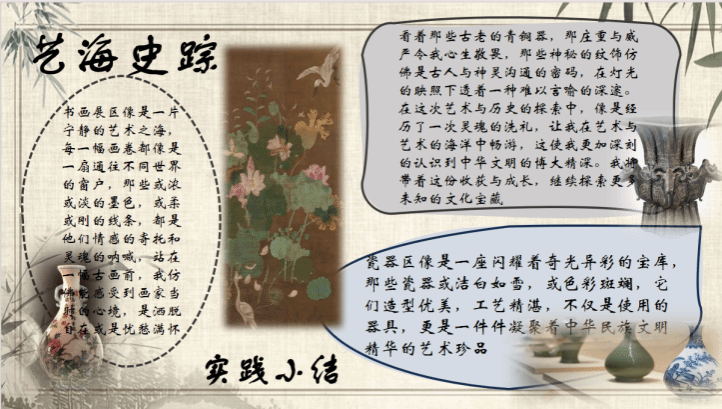 艺海史踪
书画展区像是一片
宁静的艺术之海，
每一幅画卷都像是
一扇通往不同世界
的窗户，那些或浓
或淡的墨色，或柔
或刚的线条，都是
他们情感的寄托和
灵魂的呐喊，站在
一幅古画前，我仿
佛能感受到画家当
时的心境，是洒脱
自在或是忧愁满怀
看着那些古老的青铜器，那庄重与威
严令我心生敬畏，那些神秘的纹饰仿
佛是古人与神灵沟通的密码，在灯光
的映照下透着一种难以言喻的深邃。
在这次艺术与历史的探索中，像是经
历了一次灵魂的洗礼，让我在艺术与
艺术的海洋中畅游，这使我更加深刻
的认识到中华文明的博大精深。我将
带着这份收获与成长，继续探索更多
未知的文化宝藏
瓷器区像是一座闪耀着奇光异彩的宝库，
那些瓷器或洁白如雪，或色彩斑斓，它
们造型优美，工艺精湛，不仅是使用的
器具，更是一件件凝聚着中华民族文明
精华的艺术珍品
实践小结